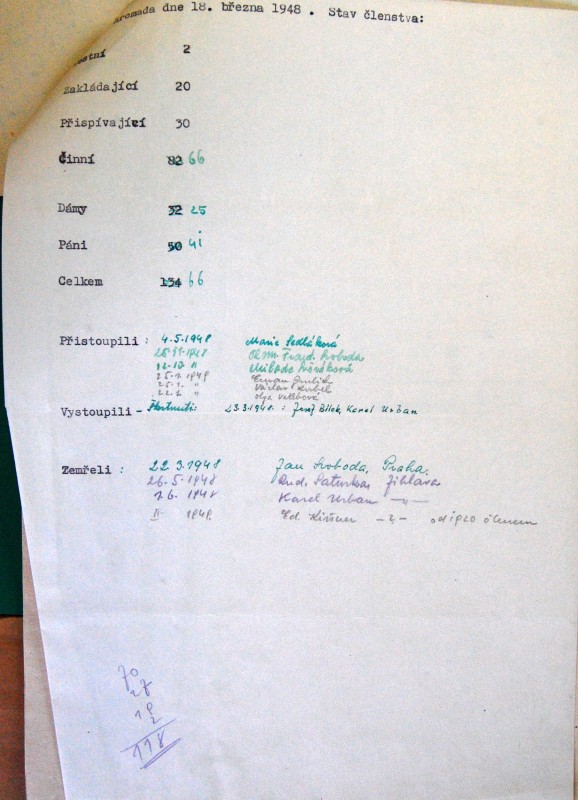 romada dne 18. března 1948 . Stav členstva:
estní 2
Zakládající 20
Přispívající 30
Činní 82 66
Dámy 32 25
Páni 50 41
Celkem 134 66
Přistoupili : 4.5.1948 Marie Sedláková
Svoboda
12.12 "
25.1. 1949
25.1. " Václav
22.2. " Olga
Vystoupili - Škrtnuti: 23.3.1948. : Josef Bílek, Karel Urban
Zemřeli : 22.3.1948 Jan Svoboda, Praha.
26.5.1948 Rud. Jihlava
1.6. 1948 Karel Urban -"-
II 1949. Ed. -"- od 1920 členem
70
27
19
2
118